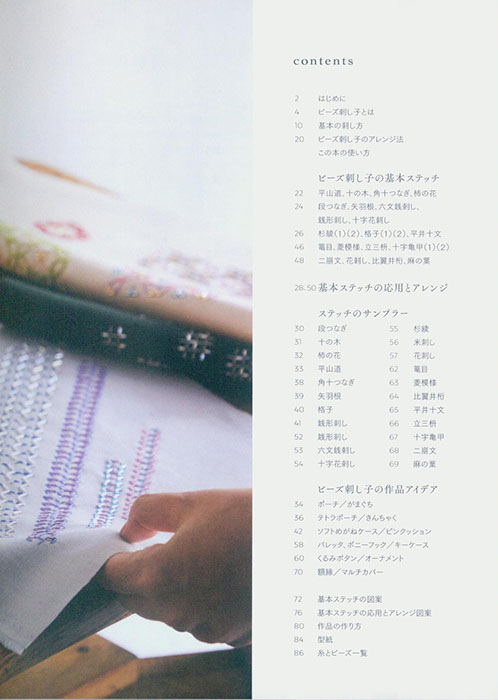 contents
2 はじめに
4 ビーズ刺し子とは
10 基本の刺し方
20 ビーズ刺し子のアレンジ法
この本の使い方
ビーズ刺し子の基本ステッチ
22 平山道、十の木、角十つなぎ、柿の花
24 段つなぎ、矢羽根、六文銭刺し、
銭形刺し、十字花刺し
26 杉綾(1)(2)、格子(1)(2)、平井十文
46 篭目、菱模様、立三枡、十字亀甲(1)(2)
48 二崩文、花刺し、比翼井桁、麻の葉
28、50 基本ステッチの応用とアレンジ
ステッチのサンプラー
30 段つなぎ
31 十の木
32 柿の花
33 平山道
38 角十つなぎ
39 矢羽根
40 格子
41 銭形刺し
52 銭形刺し
53 六文銭刺し
54 十字花刺し
55 杉綾
56 米刺し
57 花刺し
62 篭目
63 菱模様
64 比翼井桁
65 平井十文
66 立三枡
67 十字亀甲
68 二崩文
69 麻の葉
ビーズ刺し子の作品アイデア
34 ポーチ／がまぐち
36 テトラポーチ／きんちゃく
42 ソフトめがねケース／ピンクッション
58 バレッタ、ポニーフック／キーケース
60 くるみボタン／オーナメント
70 額絵／マルチカバー
72 基本ステッチの図案
76 基本ステッチの応用とアレンジ図案
80 作品の作り方
84 型紙
86 糸とビーズ一覧